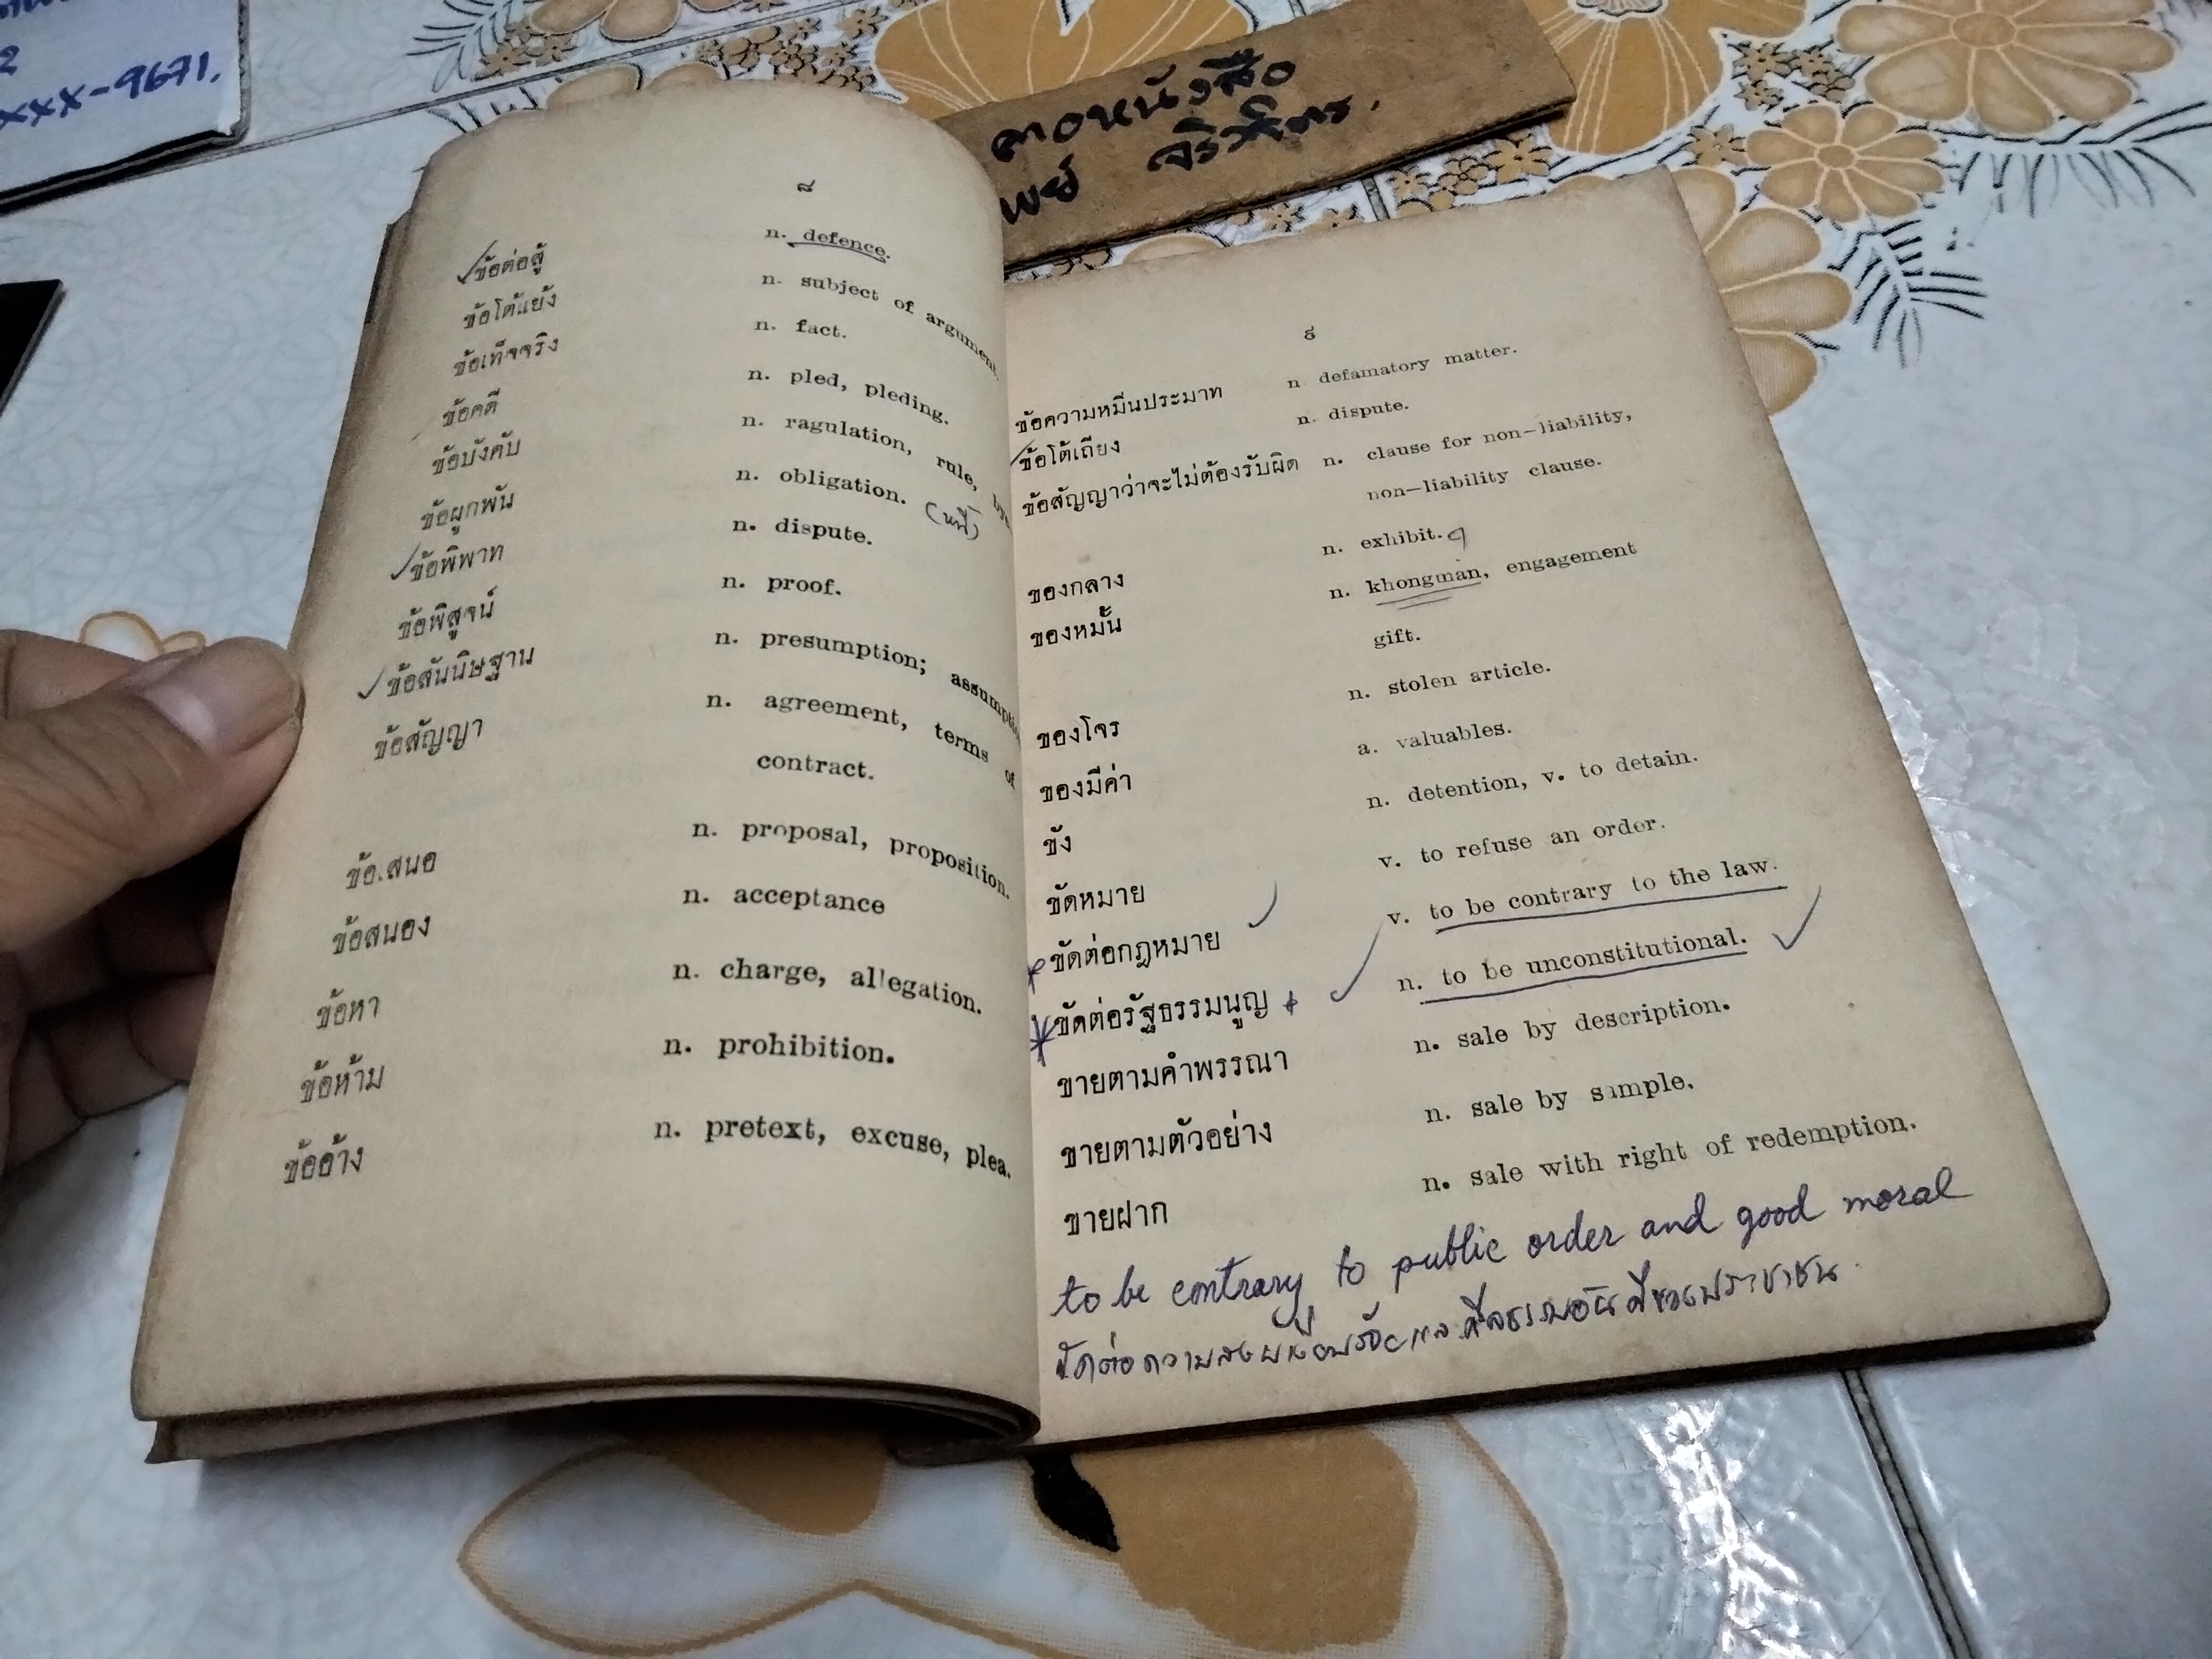 2
xxx-9671.
๘
ข้อต่อสู้ n. defence.
ข้อโต้แย้ง n. subject of argument.
ข้อเท็จจริง n. fact.
ข้อคดี n. pled, pleding.
ข้อบังคับ n. ragulation, rule,
ข้อผูกพัน n. obligation. (หนี้)
ข้อพิพาท n. dispute.
ข้อพิสูจน์ n. proof.
ข้อสันนิษฐาน n. presumption;
ข้อสัญญา n. agreement, terms of
contract.
ข้อเสนอ n. proposal, proposition.
ข้อสนอง n. acceptance
ข้อหา n. charge, allegation.
ข้อห้าม n. prohibition.
ข้ออ้าง n. pretext, excuse, plea.
๙
ข้อความหมิ่นประมาท n. defamatory matter.
ข้อโต้เถียง n. dispute.
ข้อสัญญาว่าจะไม่ต้องรับผิด n. clause for non-liability,
non-liability clause.
ของกลาง n. exhibit.
ของหมั้น n. khongman, engagement
gift.
ของโจร n. stolen article.
ของมีค่า a. valuables.
ขัง n. detention, v. to detain.
ขัดหมาย v. to refuse an order.
ขัดต่อกฎหมาย v. to be contrary to the law.
ขัดต่อรัฐธรรมนูญ n. to be unconstitutional.
ขายตามคำพรรณา n. sale by description.
ขายตามตัวอย่าง n. sale by sample.
ขายฝาก n. sale with right of redemption.
to be contrary to public order and good moral
ขัดต่อความสงบเรียบร้อยและศีลธรรมอันดีของประชาชน